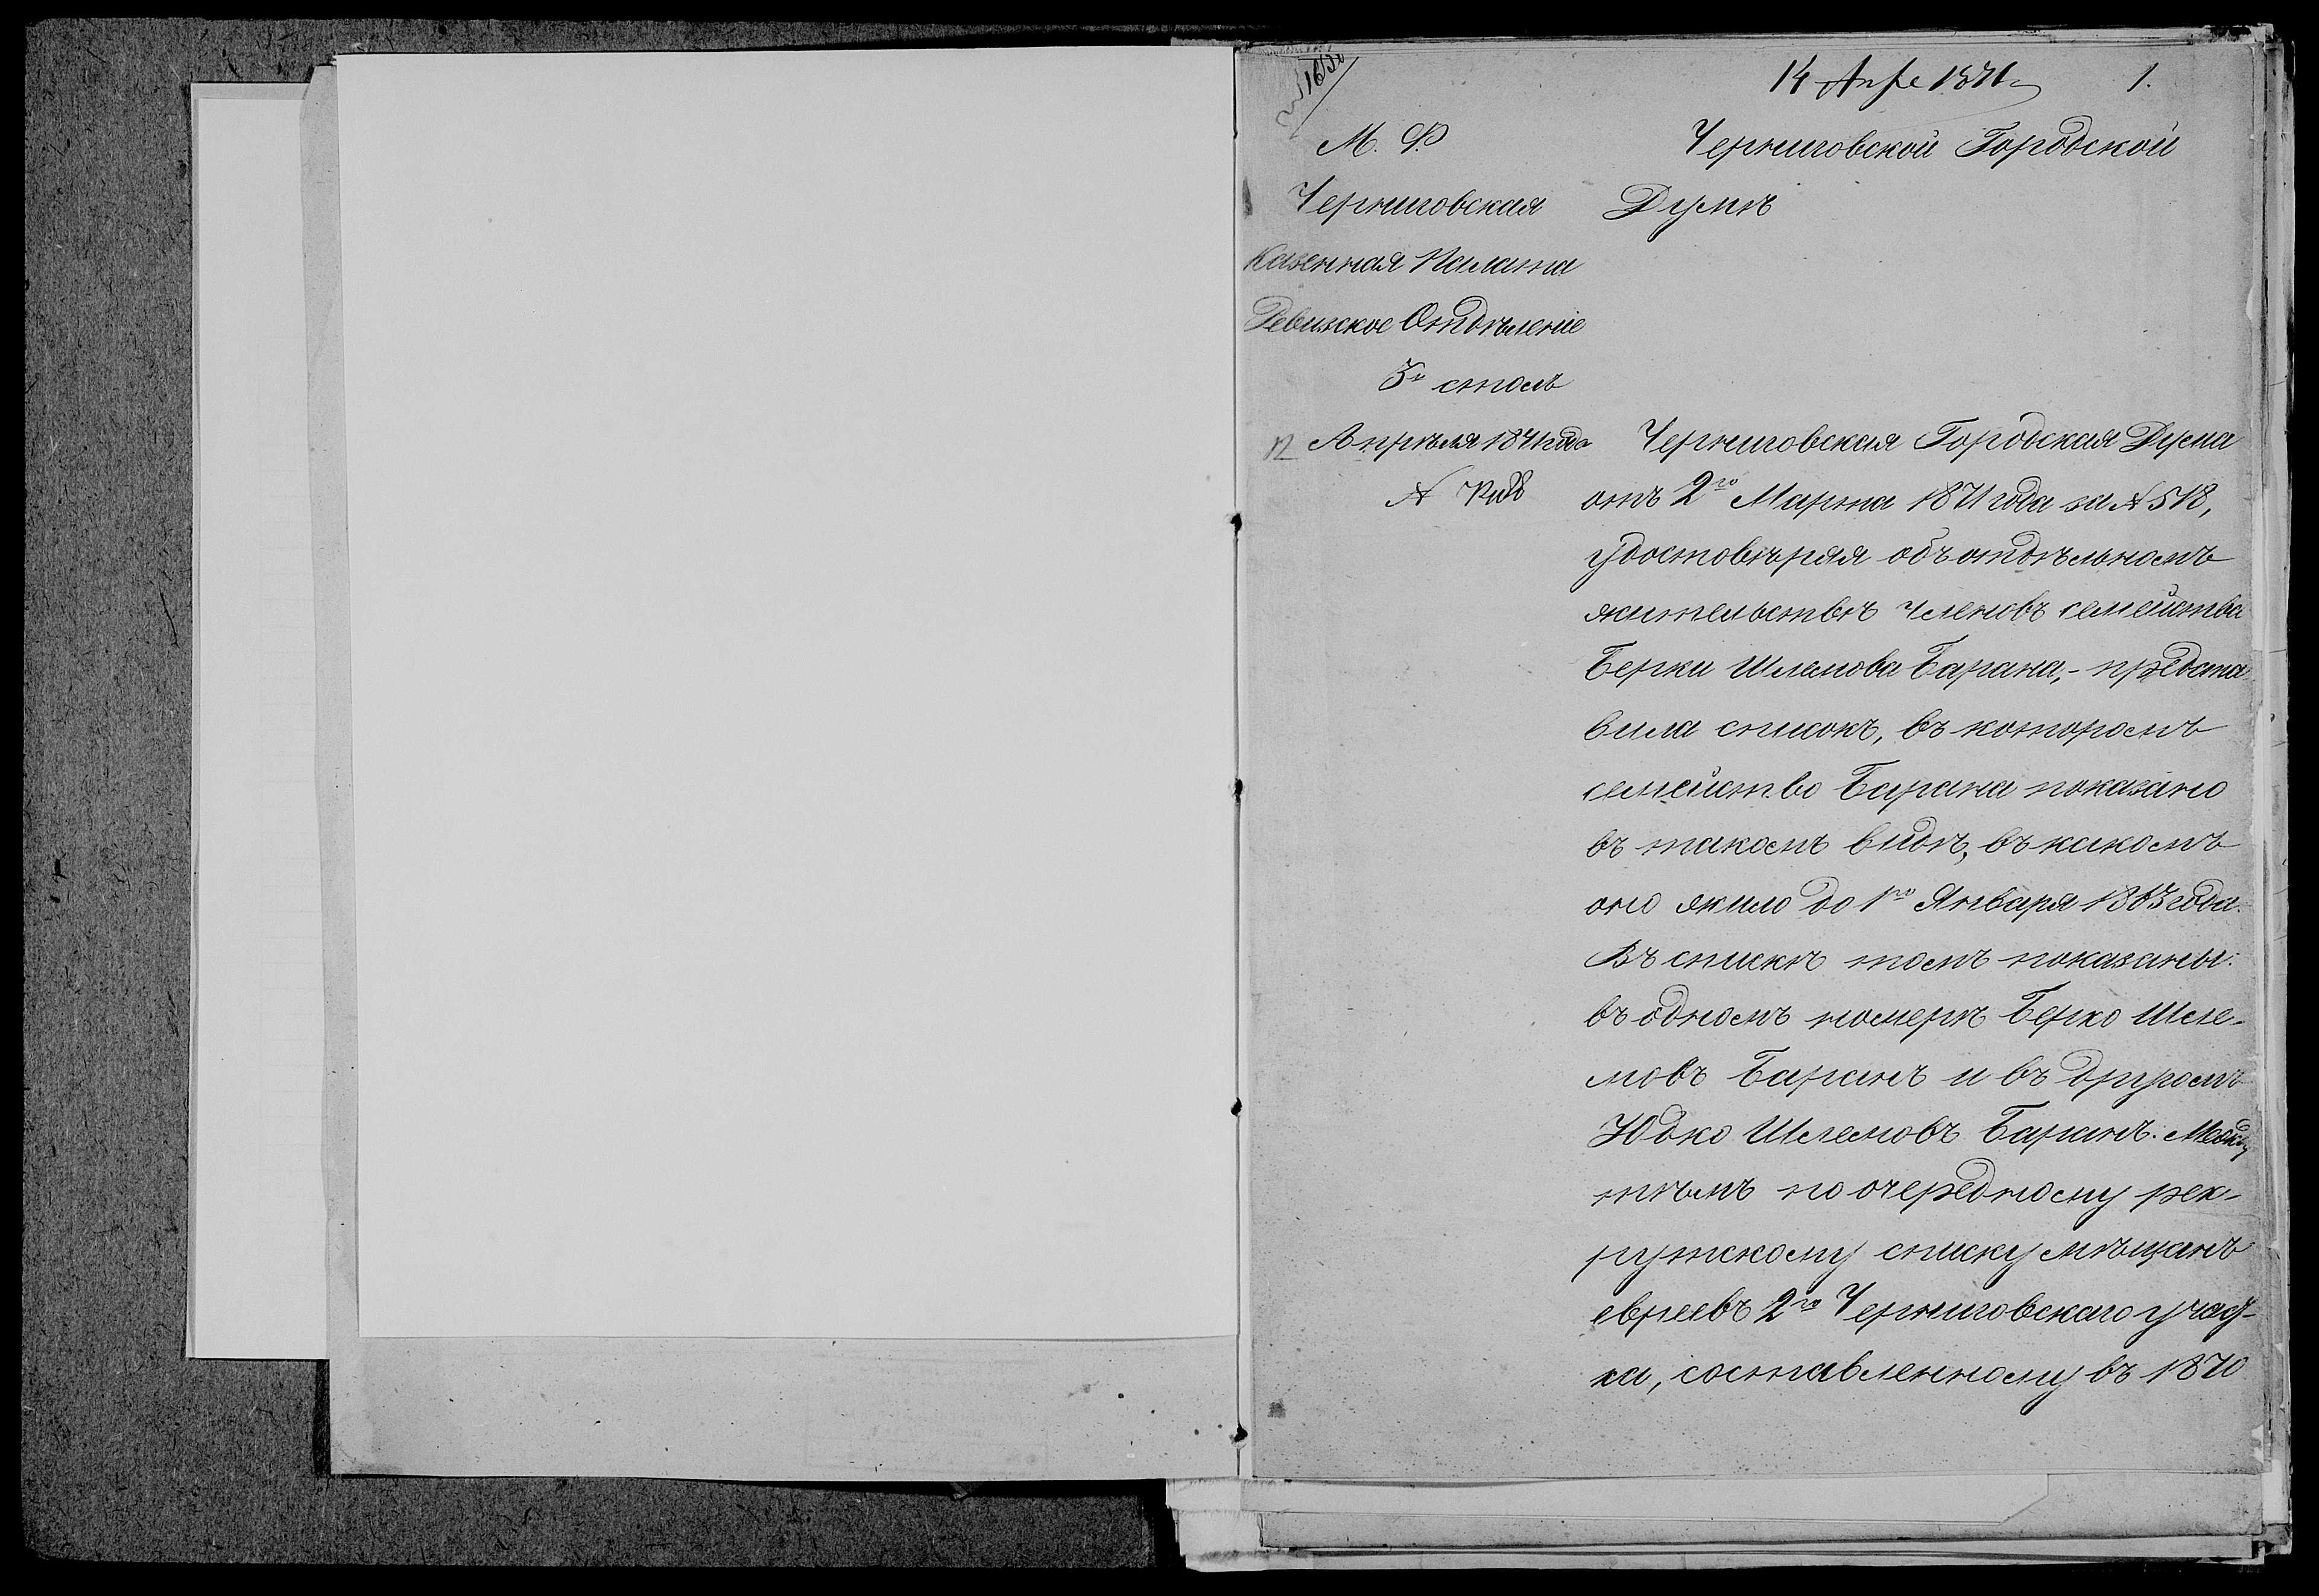 14 Апр 1871 г. 1.
М. Ф.
Черниговская
Казенная Палата
Ревизское Отдѣленіе
3й столъ
12 Апрѣля 1871 года
№
Черниговской Городской
Думѣ
Черниговская Городская Дума
отъ 2го Марта 1871 года за № 518,
удостовѣряя объ отдѣльномъ
жительствѣ членовъ семейства
Берки Шлемова Барана,- предста-
вила списокъ, въ которомъ
семейство Барана показано
въ такомъ видѣ, въ какомъ
оно жило до 1го Января 1863 года.
Въ спискѣ томъ показаны:
въ одномъ номерѣ Берко Шле-
мовъ Баранъ и въ другомъ
Юдко Шлемовъ Баранъ. Между
тѣмъ по очередному рек-
рутскому списку мѣщанъ
евреевъ 2го Черниговскаго участ-
ка, составленному въ 1870